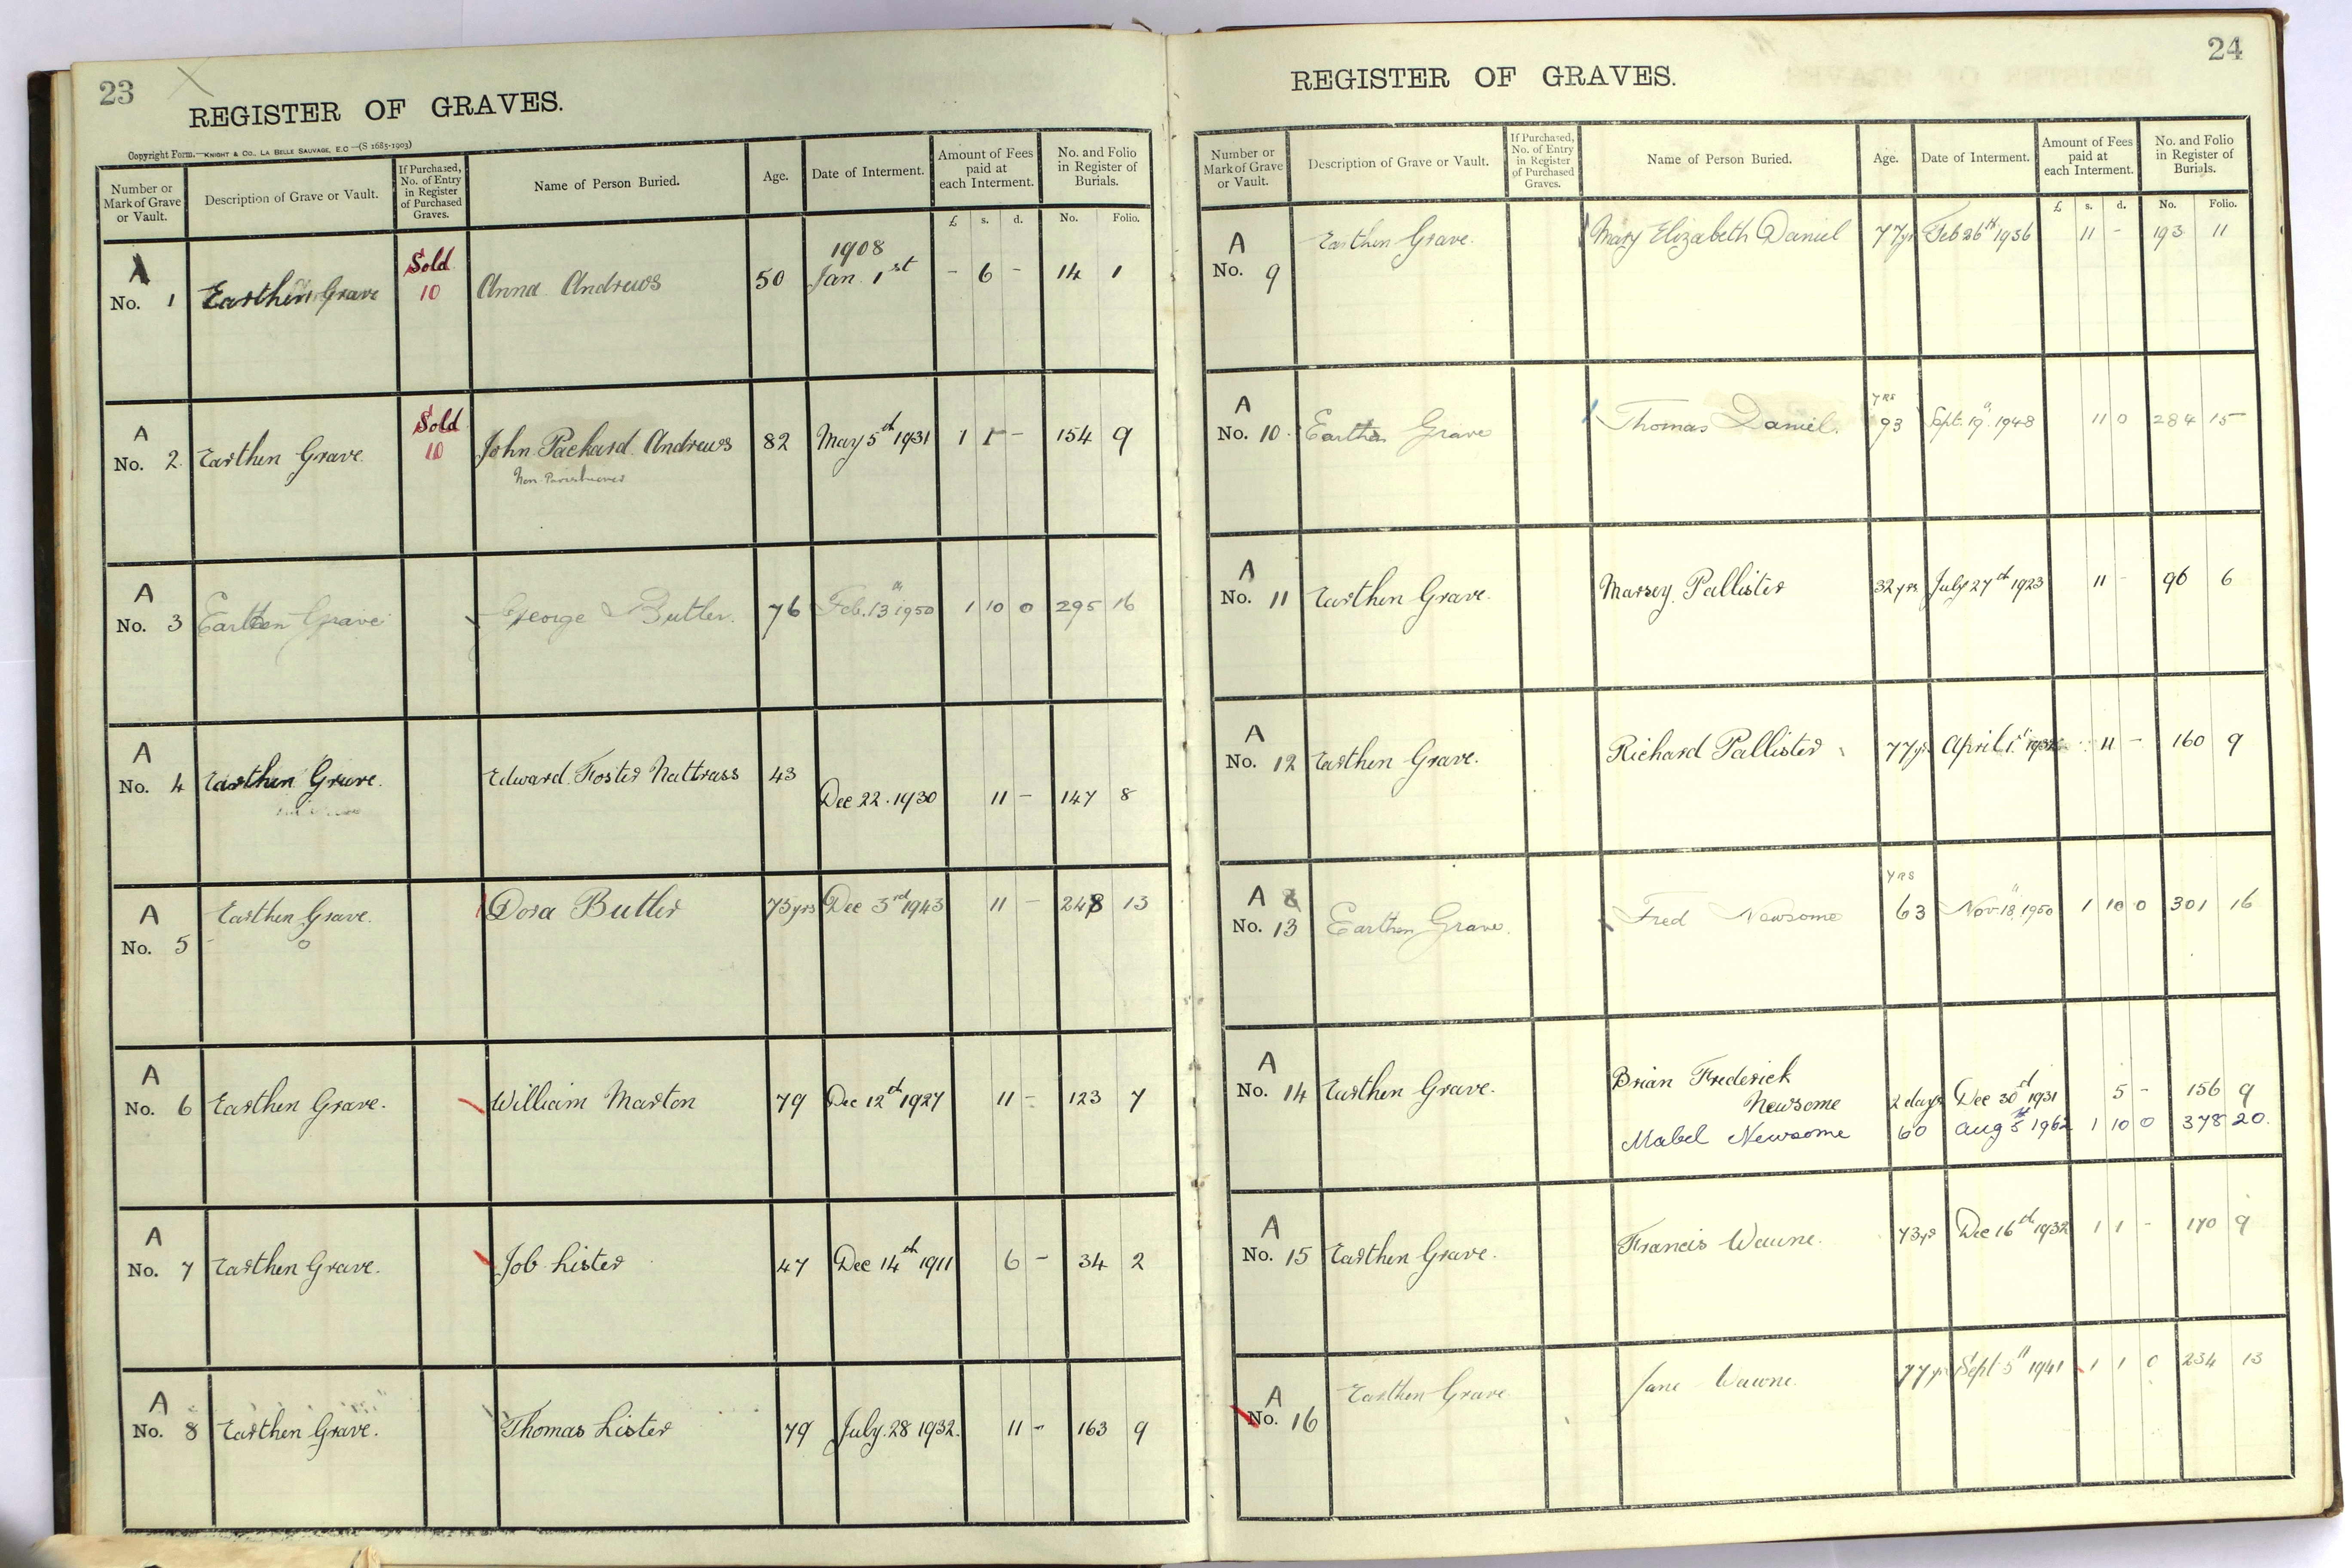 23
REGISTER OF GRAVES.
Copyright Form.—KNIGHT & CO., LA BELLE SAUVAGE, E.C.—(S 1685-1903)
Number or Mark of Grave or Vault. Description of Grave or Vault. If Purchased, No. of Entry in Register of Purchased Graves. Name of Person Buried. Age. Date of Interment. Amount of Fees paid at each Interment. No. and Folio in Register of Burials.
£ s. d. No. Folio.
A No. 1 Earthen Grave Sold 10 Anna Andrews 50 1908 Jan. 1st - 6 - 14 1
A No. 2 Earthen Grave Sold 10 John Packard Andrews 82 May 5th 1931 1 1 - 154 9
Non-Parishioner
A No. 3 Earthen Grave George Butler. 76 Feb. 13" 1950 1 10 0 295 16
A No. 4 Earthen Grave. Edward Foster Nattrass 43 Dec 22. 1930 11 - 147 8
A No. 5 Earthen Grave. Dora Butler 75yrs Dec 3rd 1943 11 - 248 13
A No. 6 Earthen Grave. William Marton 79 Dec 12th 1927 11 - 123 7
A No. 7 Earthen Grave. Job Lister 47 Dec 14th 1911 6 - 34 2
A No. 8 Earthen Grave. Thomas Lister 79 July. 28 1932. 11 - 163 9
24
REGISTER OF GRAVES.
Number or Mark of Grave or Vault. Description of Grave or Vault. If Purchased, No. of Entry in Register of Purchased Graves. Name of Person Buried. Age. Date of Interment. Amount of Fees paid at each Interment. No. and Folio in Register of Burials.
£ s. d. No. Folio.
A No. 9 Earthen Grave. Mary Elizabeth Daniel 77yrs Feb 26th 1936 11 - 193 11
A No. 10. Earthen Grave Thomas Daniel. yrs 93 Sept. 19" 1948 11 0 284 15
A No. 11 Earthen Grave. Marsey Pallister 32yrs July 27th 1923 11 - 96 6
A No. 12 Earthen Grave. Richard Pallister 77yrs April 1st 1932 11 - 160 9
A 8 No. 13 Earthen Grave. Fred Newsome yrs 63 Nov. 18" 1950 1 10 0 301 16
A No. 14 Earthen Grave. Brian Frederick
Newsome 2 days Dec 30th 1931 5 - 156 9
Mabel Newsome 60 Aug 1962 1 10 0 378 20.
A No. 15 Earthen Grave. Francis Waune. 73yrs Dec 16th 1932 1 1 - 170 9
A No. 16 Earthen Grave Jane Waune. 77yrs Sept 5th 1941 1 1 0 234 13